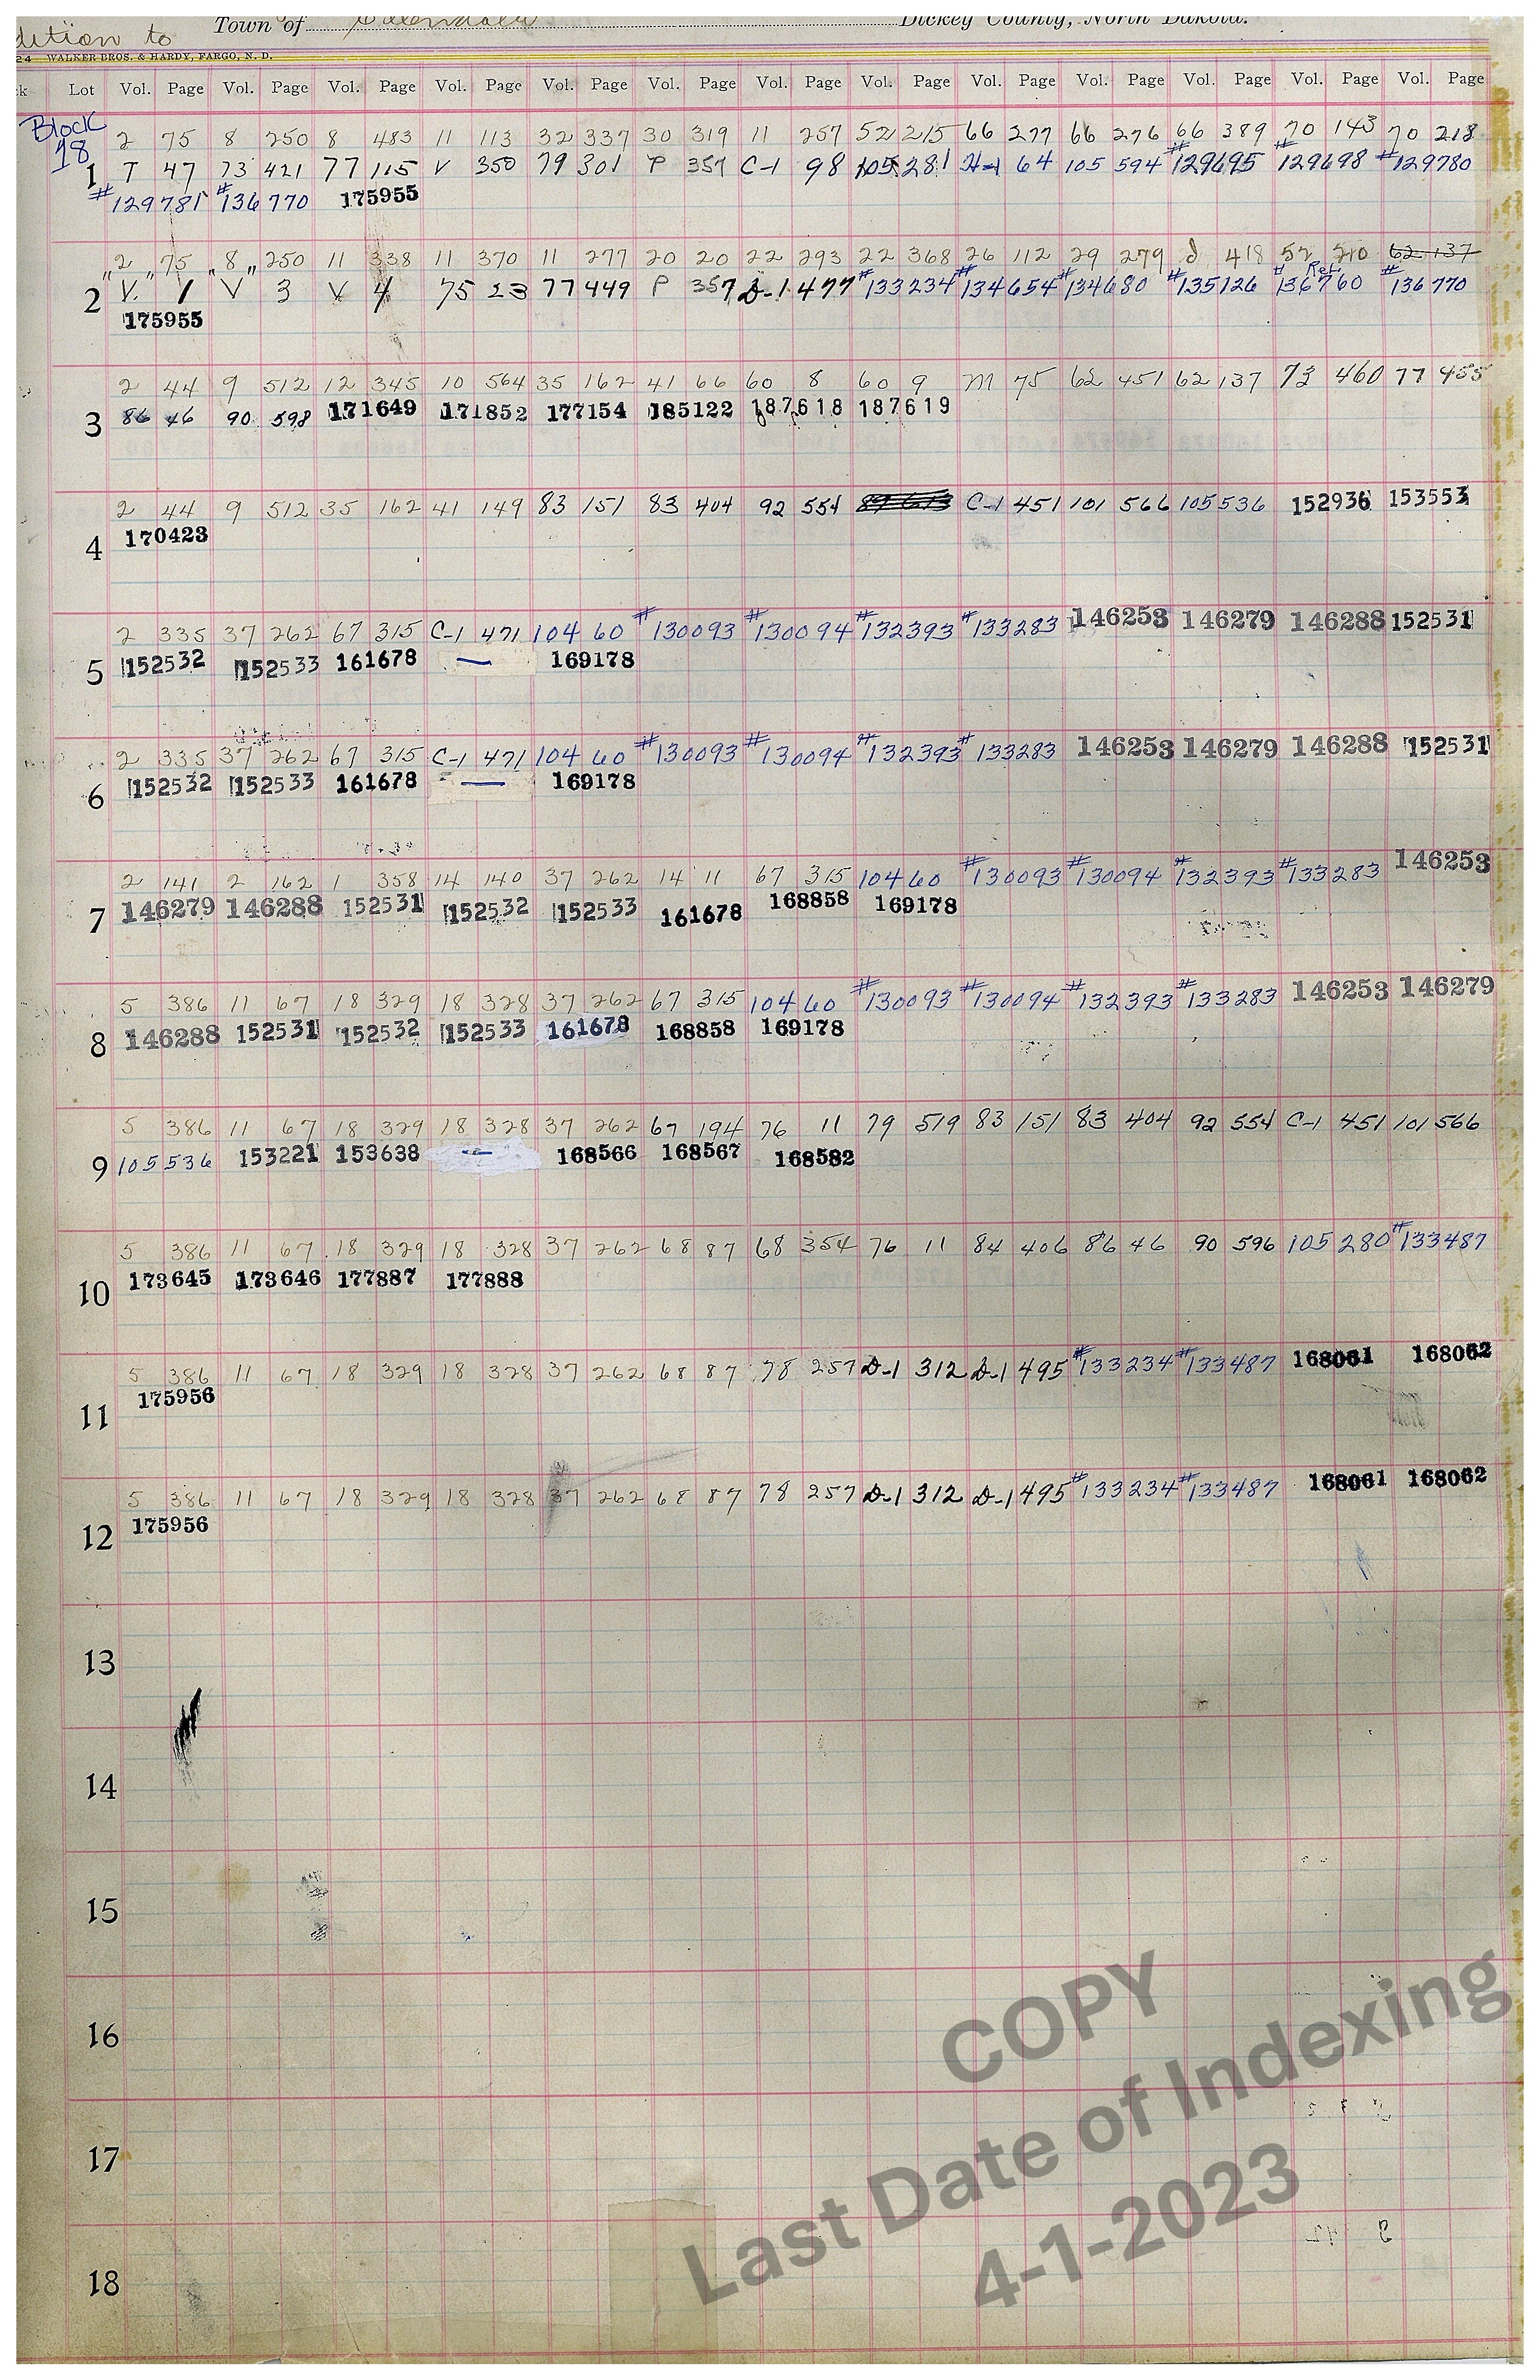 dition to Town of Dickey County, North Dakota.
24 WALKER BROS. & HARDY, FARGO, N. D.
Lot Vol. Page Vol. Page Vol. Page Vol. Page Vol. Page Vol. Page Vol. Page Vol. Page Vol. Page Vol. Page Vol. Page Vol. Page Vol. Page
Block 2 75 8 250 8 483 11 113 32 337 30 319 11 257 52 215 66 277 66 276 66 389 70 143 70 218
18
1 T 47 73 421 77 115 V 350 79 301 P 357 C-1 98 105 281 H-1 64 105 594 #129695 #129698 #129780
#129781 #136770 175955
2 75 8 250 11 338 11 370 11 277 20 20 22 293 22 368 26 112 29 279 d 418 52 210 62 137
2 " V. " 1 " V " 3 V 4 75 23 77 449 P 357 D-1 477 #133234 #134654 #134680 #135126 #136760 Rel. #136770
175955
2 44 9 512 12 345 10 564 35 162 41 66 60 8 60 9 M 75 62 451 62 137 73 460 77 455
3 86 46 90 598 171649 171852 177154 185122 187618 187619
2 44 9 512 35 162 41 149 83 151 83 404 92 554 C-1 451 101 566 105 536 152936 153553
4 170423
2 335 37 262 67 315 C-1 471 104 60 #130093 #130094 #132393 #133283 146253 146279 146288 152531
5 152532 152533 161678 — 169178
2 335 37 262 67 315 C-1 471 104 60 #130093 #130094 #132393 #133283 146253 146279 146288 152531
6 152532 152533 161678 — 169178
2 141 2 162 1 358 14 140 37 262 14 11 67 315 104 60 #130093 #130094 #132393 #133283 146253
7 146279 146288 152531 152532 152533 161678 168858 169178
5 386 11 67 18 329 18 328 37 262 67 315 104 60 #130093 #130094 #132393 #133283 146253 146279
8 146288 152531 152532 152533 161678 168858 169178
5 386 11 67 18 329 18 328 37 262 67 194 76 11 79 519 83 151 83 404 92 554 C-1 451 101 566
9 105 536 153221 153638 — 168566 168567 168582
5 386 11 67 18 329 18 328 37 262 68 87 68 354 76 11 84 406 86 46 90 596 105 280 #133487
10 173645 173646 177887 177888
5 386 11 67 18 329 18 328 37 262 68 87 78 257 D-1 312 D-1 495 #133234 #133487 168061 168062
11 175956
5 386 11 67 18 329 18 328 37 262 68 87 78 257 D-1 312 D-1 495 #133234 #133487 168061 168062
12 175956
13
14
15
16
17
18
COPY
Last Date of Indexing
4-1-2023